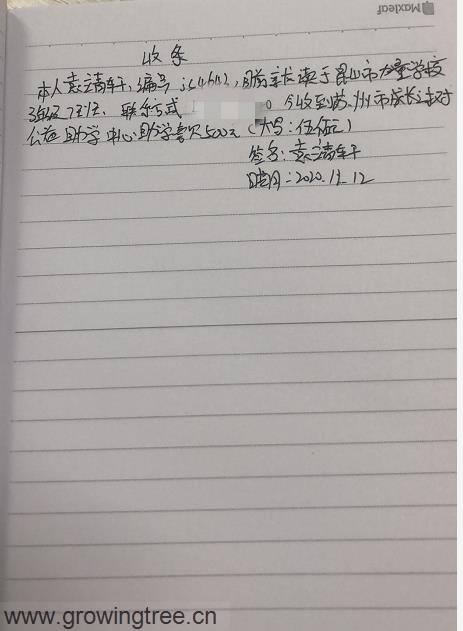 Maxleaf
收条
本人袁靖轩,编号 js4642,目前就读于昆山市 学校
3年级7班, 联系方式 0 今收到苏州市成长树
公益助学中心助学款500元(大写:伍佰元)
签名:袁靖轩
日期:2020.12.12
www.growingtree.cn